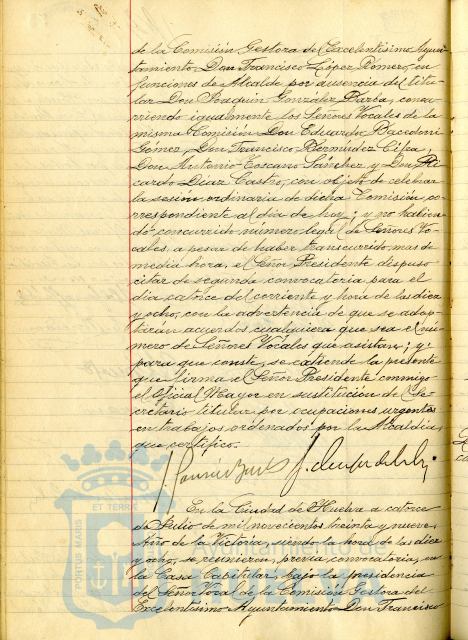 de la Comisión Gestora del Excelentísimo Ayun-
tamiento Don Francisco López Romero, en
funciones de Alcalde por ausencia del titu-
lar Don Joaquín González Barba, concu-
rriendo igualmente los Señores Vocales de la
misma Comisión Don Eduardo
Gómez, Don Francisco Bermúdez
Don Antonio Toscano Sánchez y Don Ri
cardo Díaz Castro, con objeto de celebrar
la sesión ordinaria de dicha Comisión co-
rrespondiente al día de hoy; y no habien
do concurrido número legal de Señores Vo-
cales, a pesar de haber transcurrido mas de
media hora, el Señor Presidente dispuso
citar de segunda convocatoria para el
día catorce del corriente y hora de las diez
y ocho, con la advertencia de que se adop-
tarán acuerdos cualquiera que sea el nú-
mero de Señores Vocales que asistan; y,
para que conste, se extiende la presente
que firma el Señor Presidente conmigo
el Oficial Mayor en sustitución del Se-
cretario titular por ocupaciones urgentes
en trabajos ordenados por la Alcaldía,
que certifico.
En la Ciudad de Huelva a catorce
de Julio de mil novecientos treinta y nueve,
Año de la Victoria, siendo la hora de las diez
y ocho, se reunieron, previa convocatoria, en
la Casa Capitular, bajo la presidencia
del Señor Vocal de la Comisión Gestora del
Excelentísimo Ayuntamiento Don Francisco
PORTUS MARIS
ET TERRAE
Ayuntamiento de